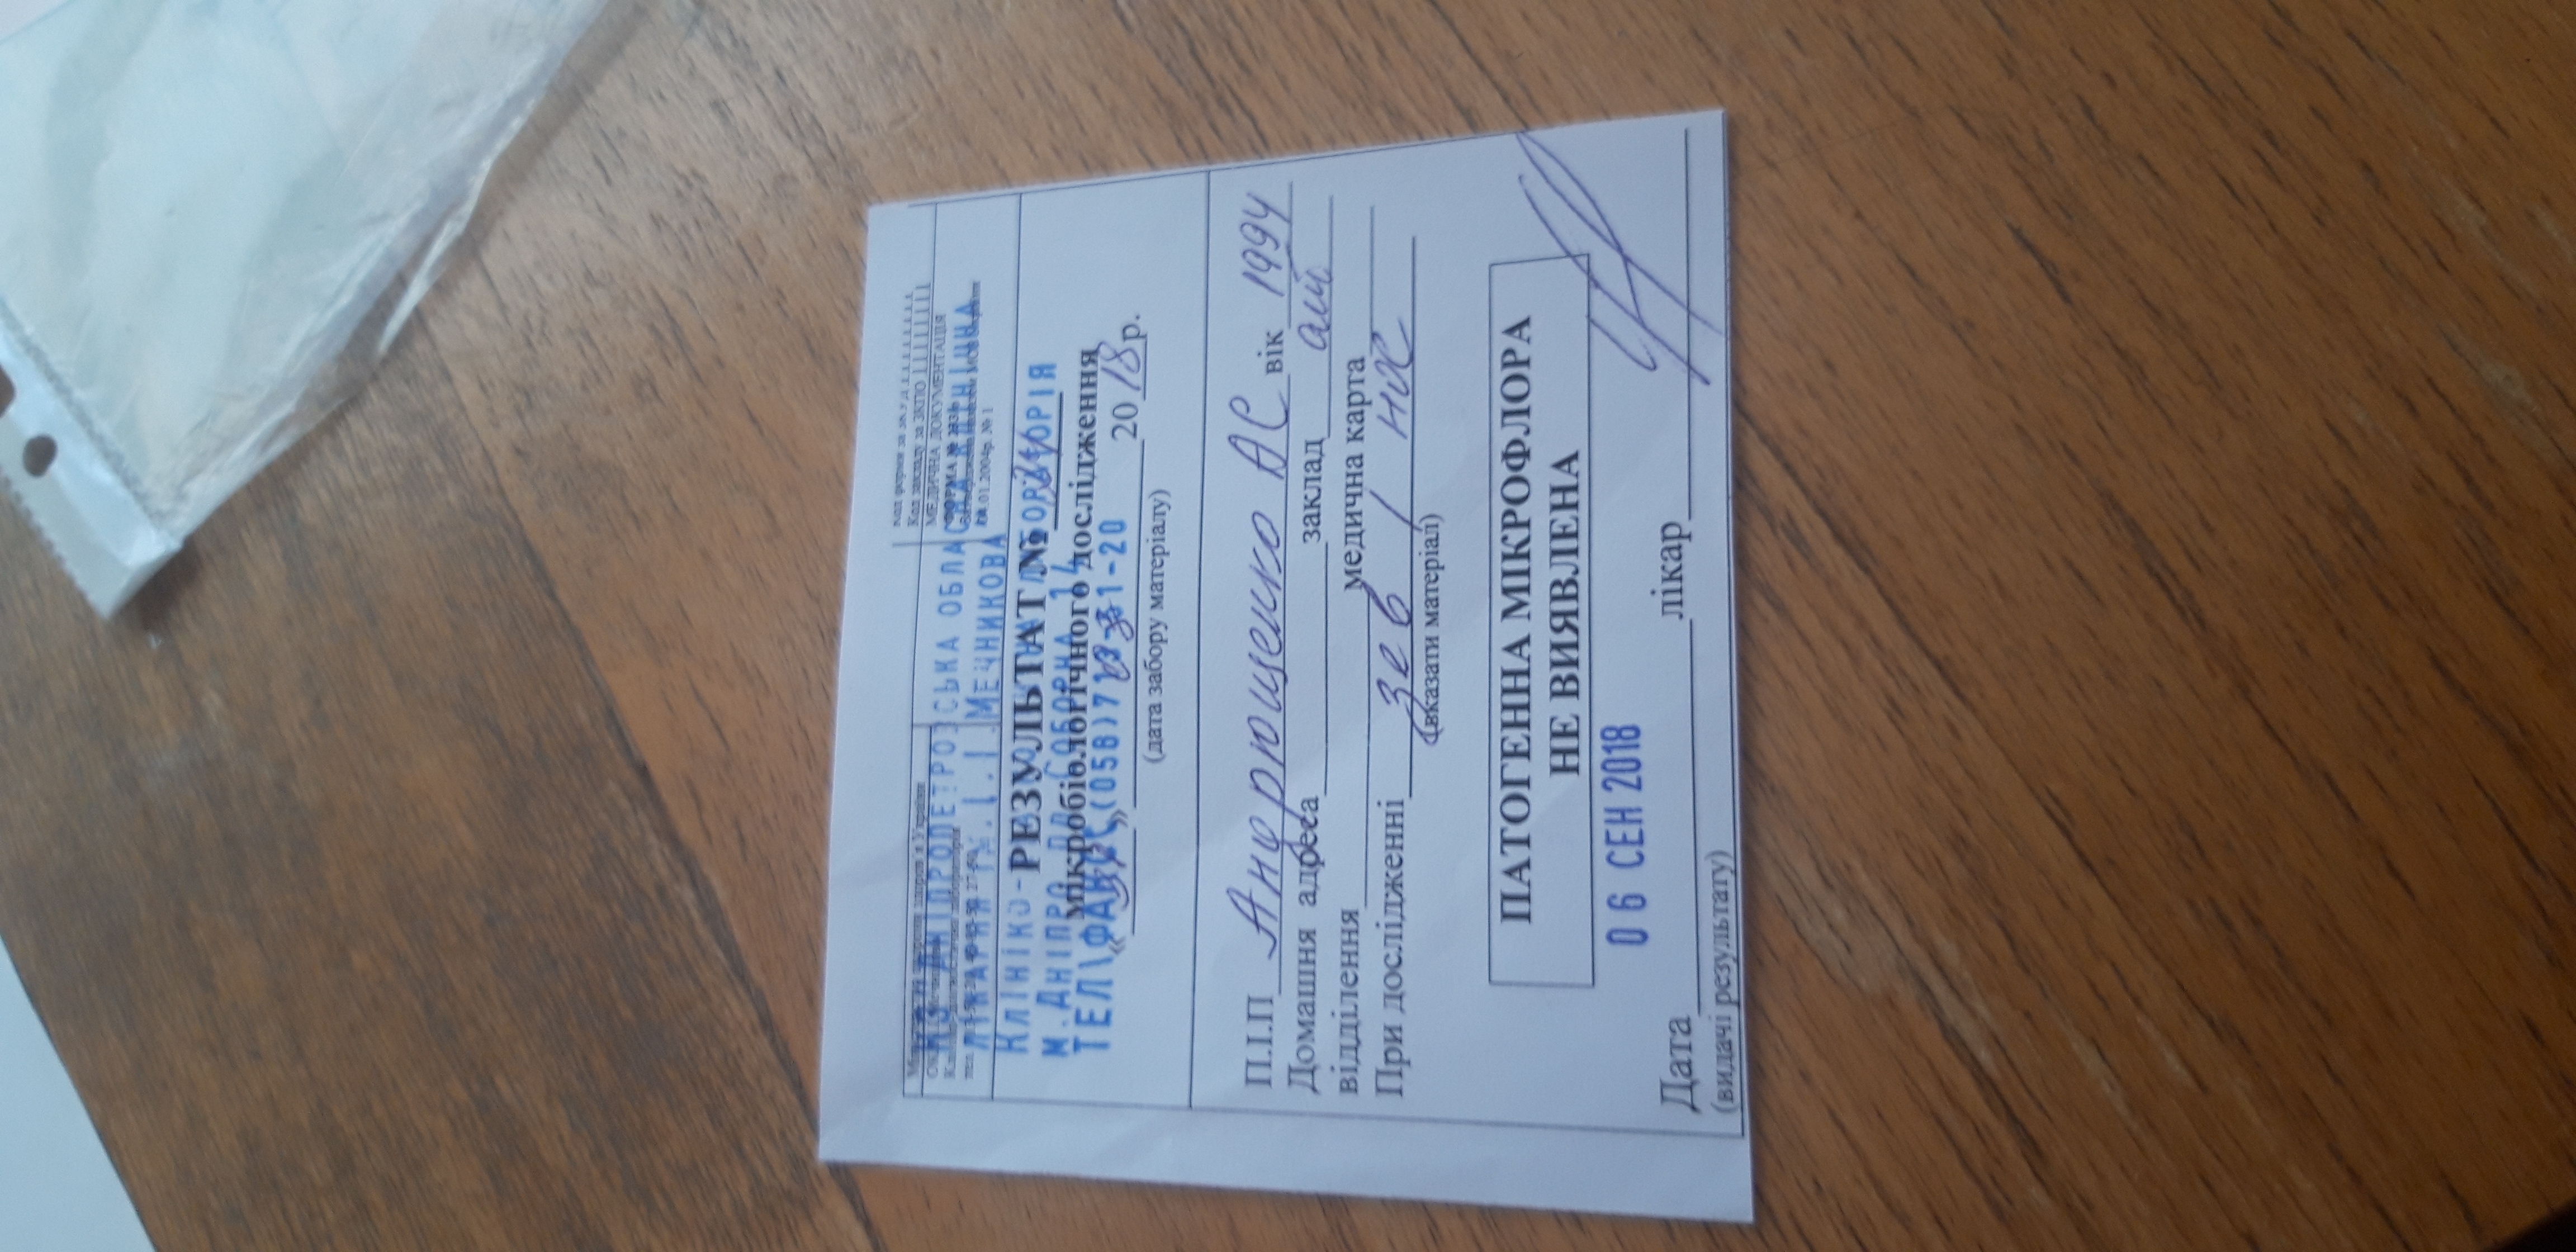 Міністерство охорони здоров'я України
Код форми за ЗКУД
Код закладу за ЗКПО
МЕДИЧНА ДОКУМЕНТАЦІЯ
ФОРМА №
01.2004р. № 1
КЗ ДНІПРОПЕТРОВСЬКА ОБЛАСНА КЛІНІЧНА
ЛІКАРНЯ ІМ. І.І.МЕЧНИКОВА
КЛІНІКО-ДІАГНОСТИЧНА ЛАБОРАТОРІЯ
м.ДНІПРО ПЛ.СОБОРНА 14
ТЕЛ\ФАКС (056)713-51-20
РЕЗУЛЬТАТ №
мікробіологічного дослідження
« » 2018 р.
(дата забору матеріалу)
П.І.П Андрющенко АС вік 1994
Домашня адреса заклад
відділення медична карта
При дослідженні зев / нос
(вказати матеріал)
ПАТОГЕННА МІКРОФЛОРА
НЕ ВИЯВЛЕНА
06 СЕН 2018
Дата лікар
(видачі результату)